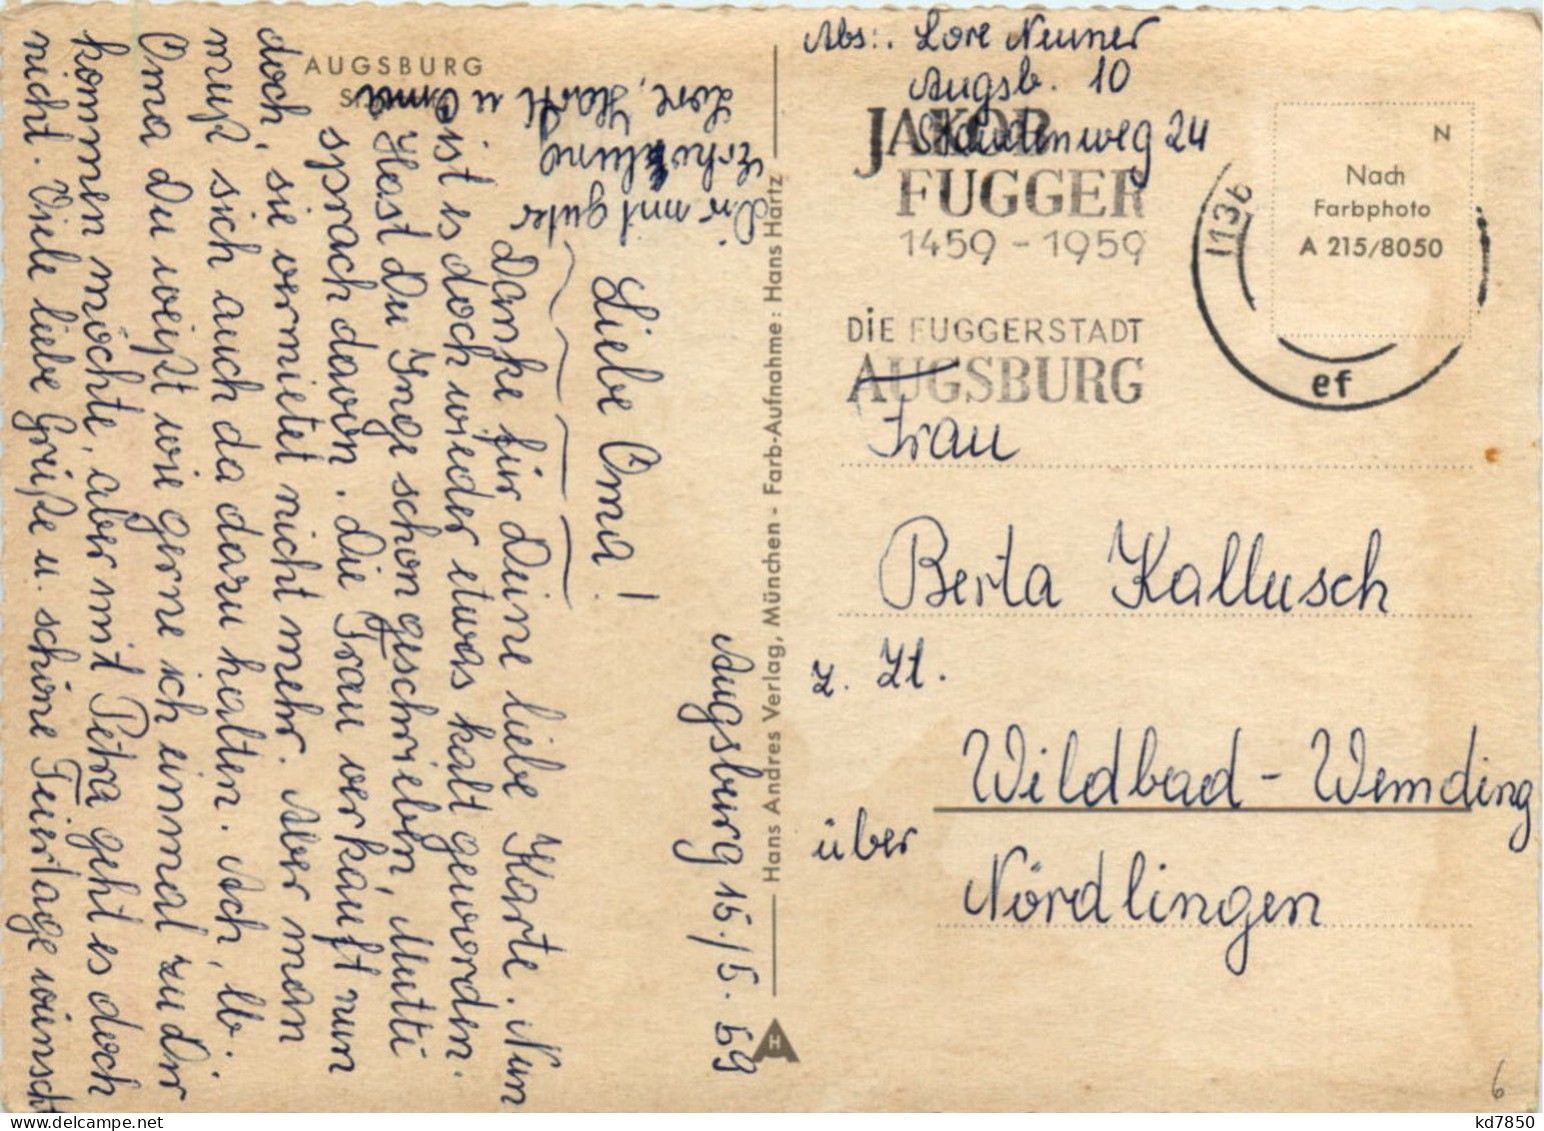 AUGSBURG
Augsburg 15./5. 59
Liebe Oma!
Danke für Deine liebe Karte. Nun
ist es doch wieder etwas kalt geworden.
Hast Du Inge schon geschrieben, Mutti
sprach davon. Die Frau verkauft nun
doch, sie vermietet nicht mehr. Aber man
muß sich auch da dazu halten. Ach, lb.
Oma Du weißt wie gerne ich einmal zu Dir
kommen möchte, aber mit Petra geht es doch
nicht. Viele liebe Grüße u. schöne Feiertage wünscht
Dir mit guter
Erholung
Lore, Hartl u
Hans Andres Verlag, München - Farb-Aufnahme: Hans Hartz
H
Abs.: Lore Neuner
Augsb. 10
Staudenweg 24
JAKOB
FUGGER
1459 - 1959
DIE FUGGERSTADT
AUGSBURG
1136
ef
N
Nach
Farbphoto
A 215/8050
Frau
Berta Kallusch
z. Zt.
Wildbad - Wemding
über
Nördlingen
6
kd7850